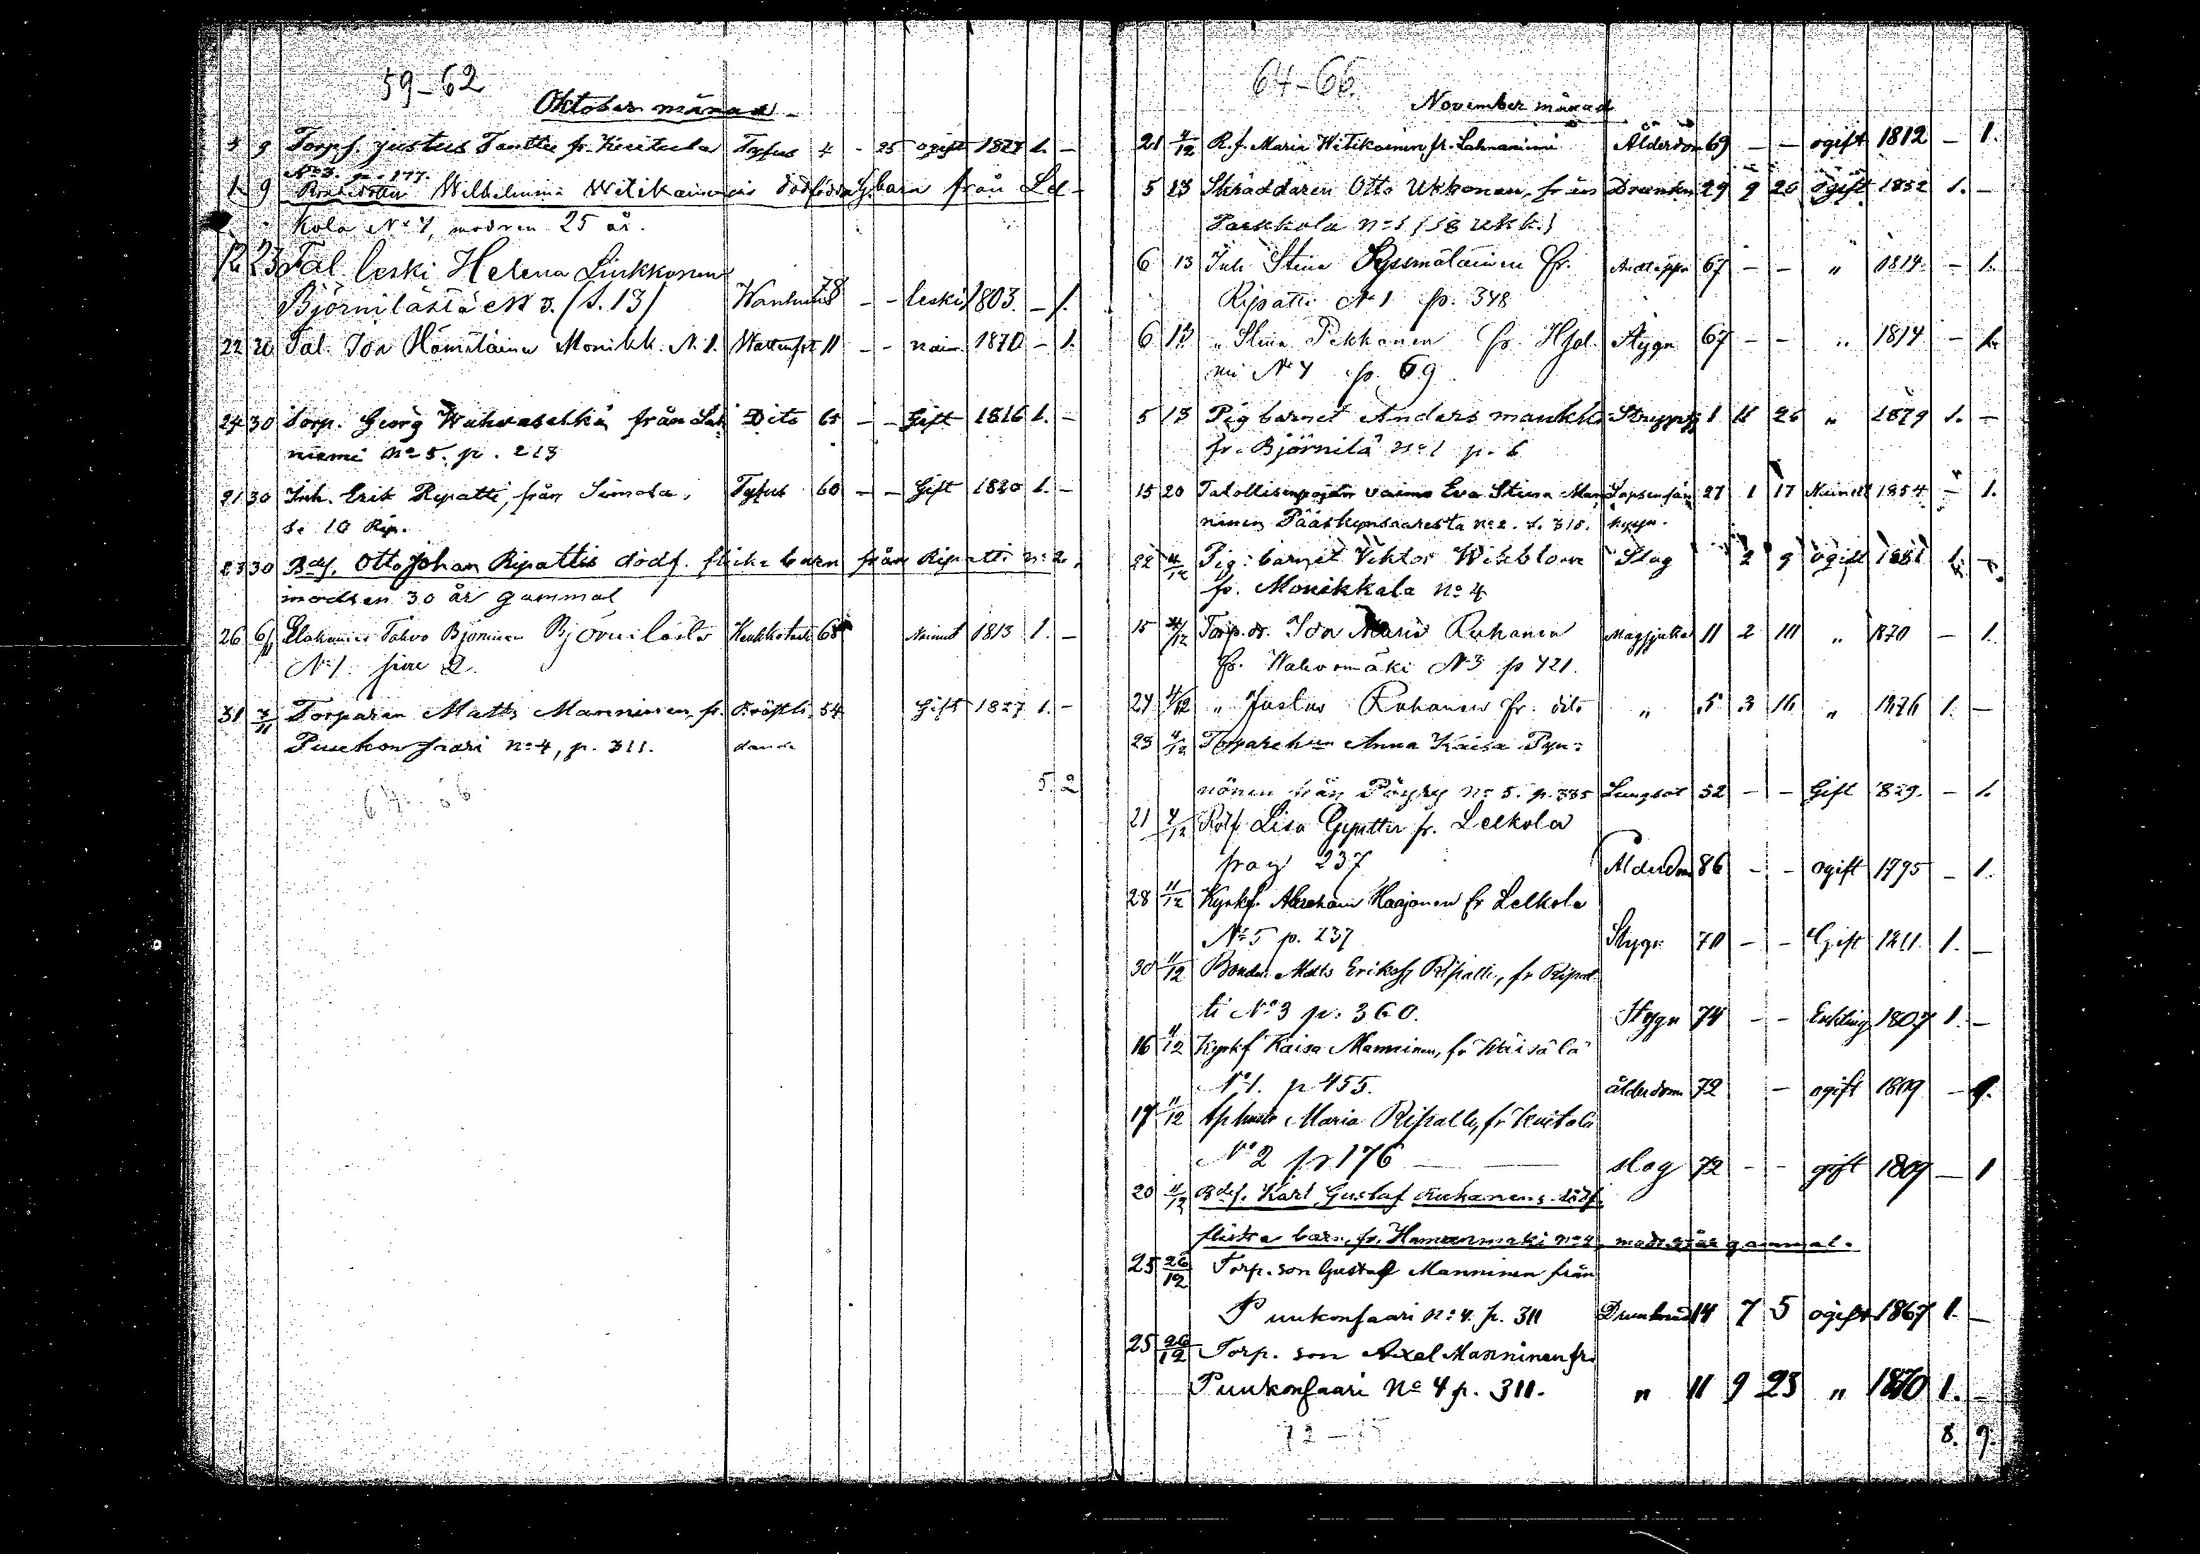 59-62
Oktober månad
4 9 Torp. s. Justus Tanttu fr. Kuitula Tyfus 4 - 25 ogift 1877 1. -
No 3. p. 177.
1 9 Bondedotter Wilhelmina Witikainens dödfödda barn från Lel-
kola No 4, modren 25 år.
12 23 Tal. leski Helena Sinkkonen
Björnilästä No 3. (S. 13) Wanhuus 78 - - leski 1803. - 1.
22 26 Tal. Ida Hämäläinen Monikk. N. 1. 11 - - 1870 - 1.
24 30 Torp. Georg från Lah Dito 65 - - Gift 1816 1. -
niemi No 5. p. 213
21 30 Inh. Erik Ripatti, från Simola, Tyfus 60 - - Gift 1820 1. -
s. 10 Rip.
23 30 Bdes. Otto Johan Ripattis dödf. flicke barn från Ripatti No 2,
modren 30 år gammal
26 6/11 Tahvo Björninen Björnilästä 68 Nainut 1813 1. -
No 1 sivu 2.
31 Torparen Matts Manninen, fr. 54 Gift 1827 1. -
Puukonsaari No 4, p. 311.
5. 2
64-66
64-66.
November månad
21 4/12 R. f. Maria Witikainen fr. Lahnaniemi Ålderdom 69 - - ogift 1812 - 1.
5 13 Skräddaren Otto Ukkonen, från Drunkn 29 9 20 ogift 1852 1. -
Parkkola No 1 (58 Ukk.)
6 13 Inh Stina fr. 67 - - " 1814 - 1.
Ripatti No 1 p. 348
6 13 " Stina Pekkanen fr. Stygn 67 - - " 1814 - 1.
mi No 4 p. 69
5 13 Pig barnet Anders 1 11 26 " 1879 1. -
fr. Björnilä No 1 p. 6
15 20 Talollisenpojan vaimo Eva Stina Man 27 1 17 1854 - 1.
ninen Pääskynsaaresta No 2. s. 315.
22 4/12 Pig: barnet Viktor Wikblom Slag 2 9 ogift 1881 1. -
fr. Monikkala No 4
15 4/12 Torp. dr. Ida Maria Ruhanen 11 2 10 " 1870 - 1.
fr. Wahvomäki No 3 p 421.
24 4/12 " Justus Ruhanen fr. dito " 5 3 16 " 1876 1. -
23 4/12 Torpareh:n Anna Kaisa Pyn-
nönen från Pöyry No 5. p. 335 Lungsot 52 - - Gift 1829. - 1.
21 4/12 Rotf. Lisa fr. Lelkola
pag 237 Ålderdom 86 - - ogift 1795 - 1.
28 11/12 Kyrkf. Abraham Haajanen fr Lelkola
No 5 p. 237 Stygn 70 - - Gift 1811 1. -
30 11/12 Bonden Matts Eriksson Ripatti, fr Ripat
ti No 3 p. 360. Stygn 74 - - Enkling 1807 1. -
16 11/12 Kyrkf Kaisa Manninen, fr Wäisälä
No 1. p 455. ålderdom 72 - ogift 1809 - 1.
17 11/12 Maria Ripatti, fr Kuitola
No 2 p 176 slag 72 - - gift 1809 - 1
20 11/12 Bdes. Karl Gustaf Ruhanens dödf.
flicke barn, fr. No 4, gammal.
25 26/12 Torp. son Gustaf Manninen från
Puukonsaari No 4. p. 311 Drunknad 14 7 5 ogift 1867 1. -
25 26/12 Torp. son Axel Manninen fr.
Puukonsaari No 4 p. 311. " 11 9 23 " 1870 1. -
72-75
8. 9.